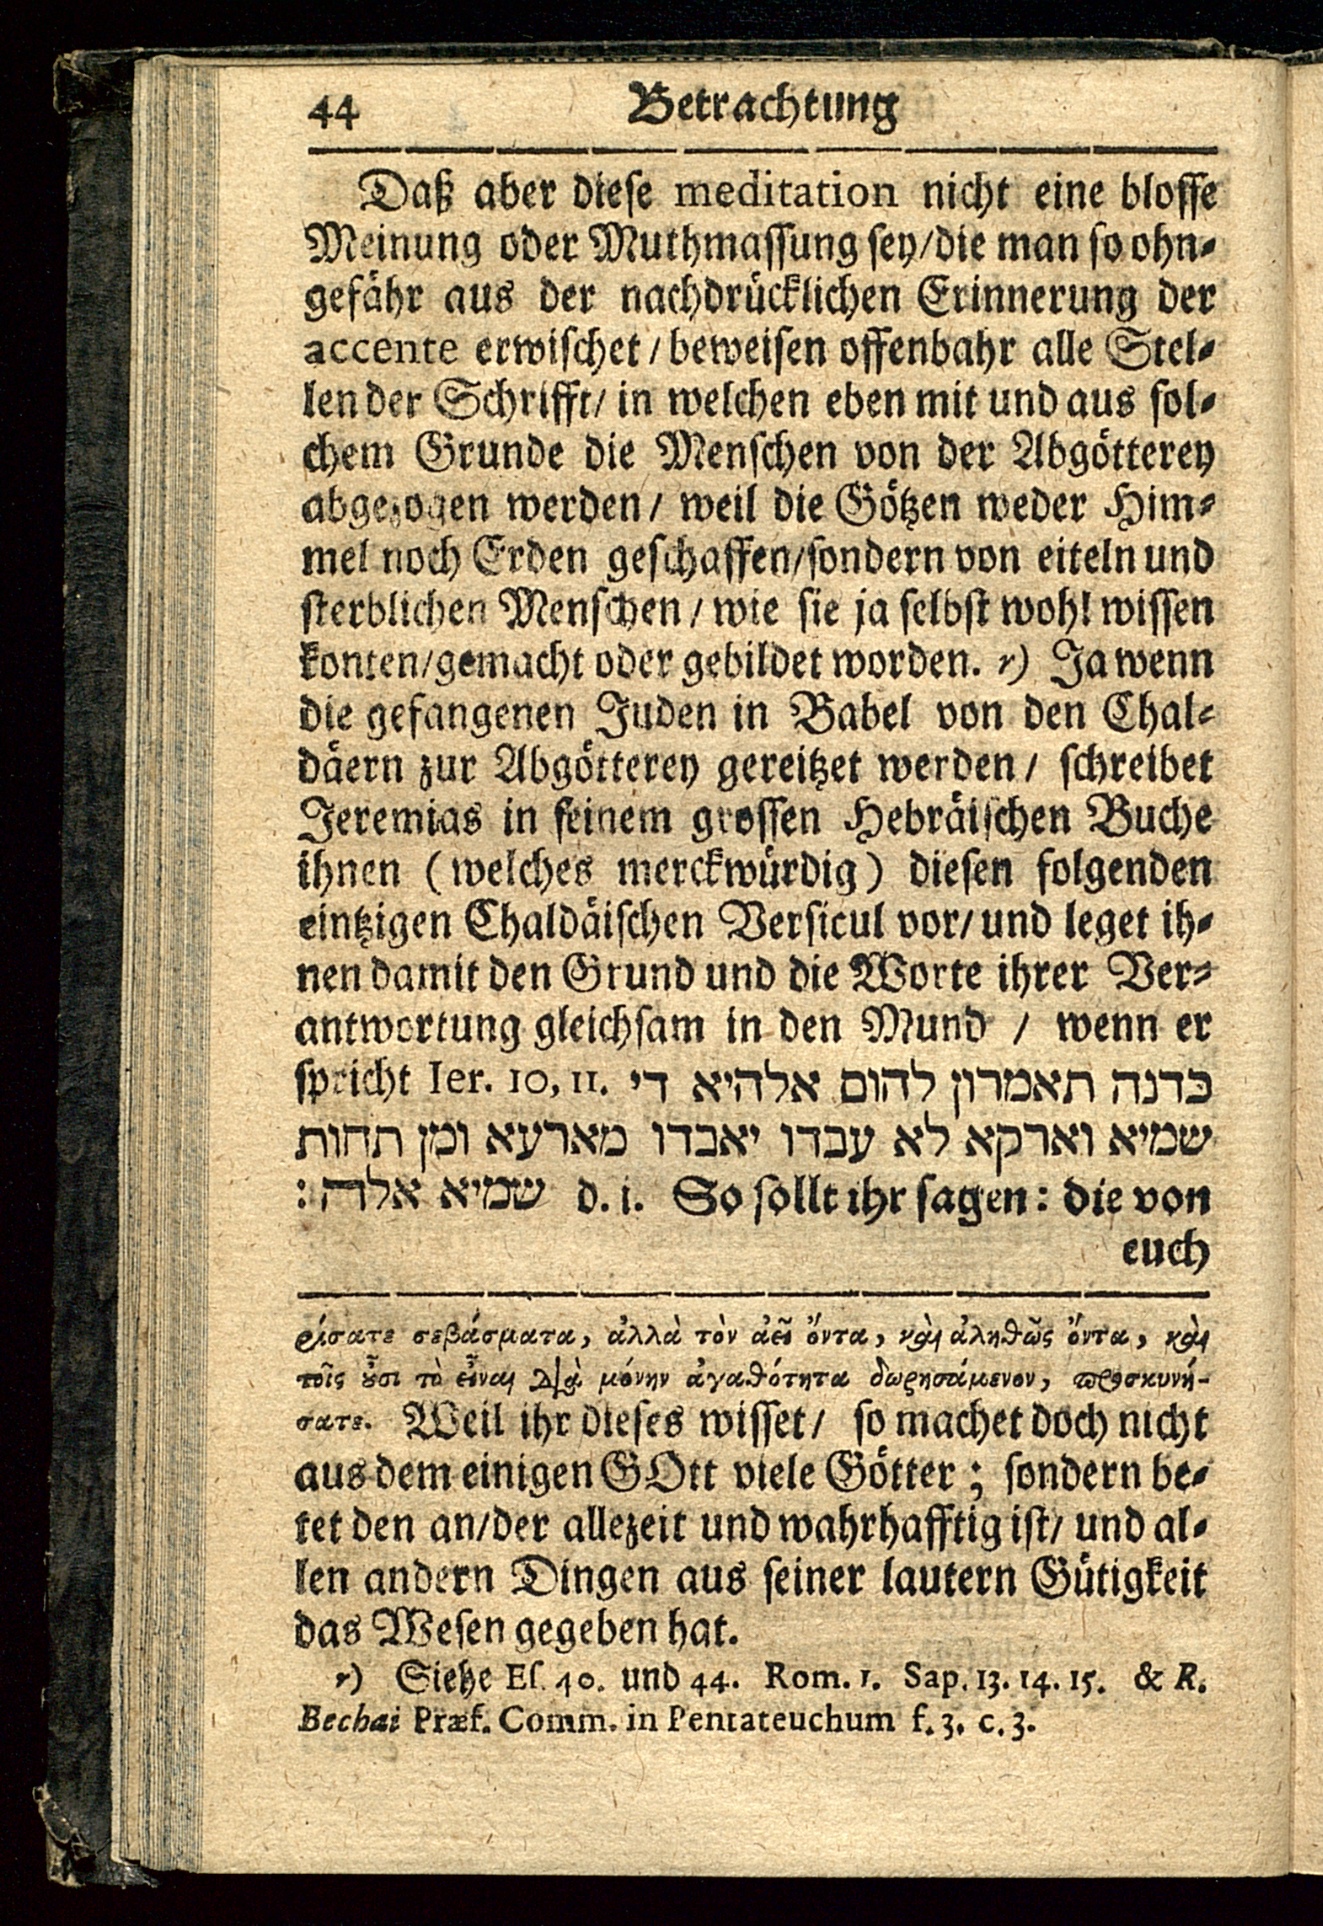 44 Betrachtung
Daß aber diese meditation nicht eine blosse
Meinung oder Muthmassung sey/die man so ohn-
gefähr aus der nachdrücklichen Erinnerung der
accente erwischet / beweisen offenbahr alle Stel-
len der Schrifft/ in welchen eben mit und aus sol-
chem Grunde die Menschen von der Abgötterey
abgezogen werden / weil die Götzen weder Him-
mel noch Erden geschaffen/sondern von eiteln und
sterblichen Menschen / wie sie ja selbst wohl wissen
konten/gemacht oder gebildet worden. r) Ja wenn
die gefangenen Juden in Babel von den Chal-
däern zur Abgötterey gereitzet werden / schreibet
Jeremias in seinem grossen Hebräischen Buche
ihnen (welches merckwürdig) diesen folgenden
eintzigen Chaldäischen Versicul vor/ und leget ih-
nen damit den Grund und die Worte ihrer Ver-
antwortung gleichsam in den Mund / wenn er
spricht Ier. 10, 11. כדנה תאמרון להום אלהיא די
שמיא וארקא לא עבדו יאבדו מארעא ומן תחות
שמיא אלה : d. i. So sollt ihr sagen: die von
euch
ρίσατε σεβάσματα, ἀλλὰ τὸν ἀεὶ ὄντα, καὶ ἀληθῶς ὄντα, καὶ
τοῖς οὖσι τὸ εἶναι διὰ μόνην ἀγαθότητα δωρησάμενον, προσκυνή-
σατε. Weil ihr dieses wisset / so machet doch nicht
aus dem einigen GOtt viele Götter; sondern be-
tet den an/der allezeit und wahrhafftig ist/ und al-
len andern Dingen aus seiner lautern Gütigkeit
das Wesen gegeben hat.
r) Siehe Es. 40. und 44. Rom. 1. Sap. 13. 14. 15. & R.
Bechai Præf. Comm. in Pentateuchum f. 3. c. 3.